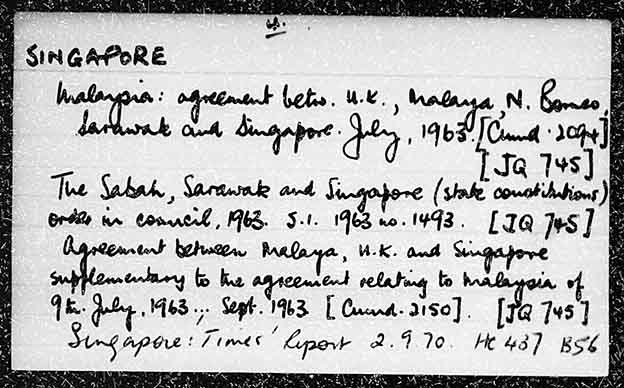 SINGAPORE
Malaysia: agreement betw. U.K., Malaya, N. Borneo,
Sarawak and Singapore. July, 1963. [Cmnd. 2094]
[JQ 745]
The Sabah, Sarawak and Singapore (state constitutions)
order in council, 1963. S.I. 1963 no. 1493. [JQ 745]
Agreement between Malaya, U.K. and Singapore
supplementary to the agreement relating to Malaysia of
9th. July, 1963... Sept. 1963 [Cmnd. 2150]. [JQ 745]
Singapore: 'Times' Report 2.9.70. HC 437 B56